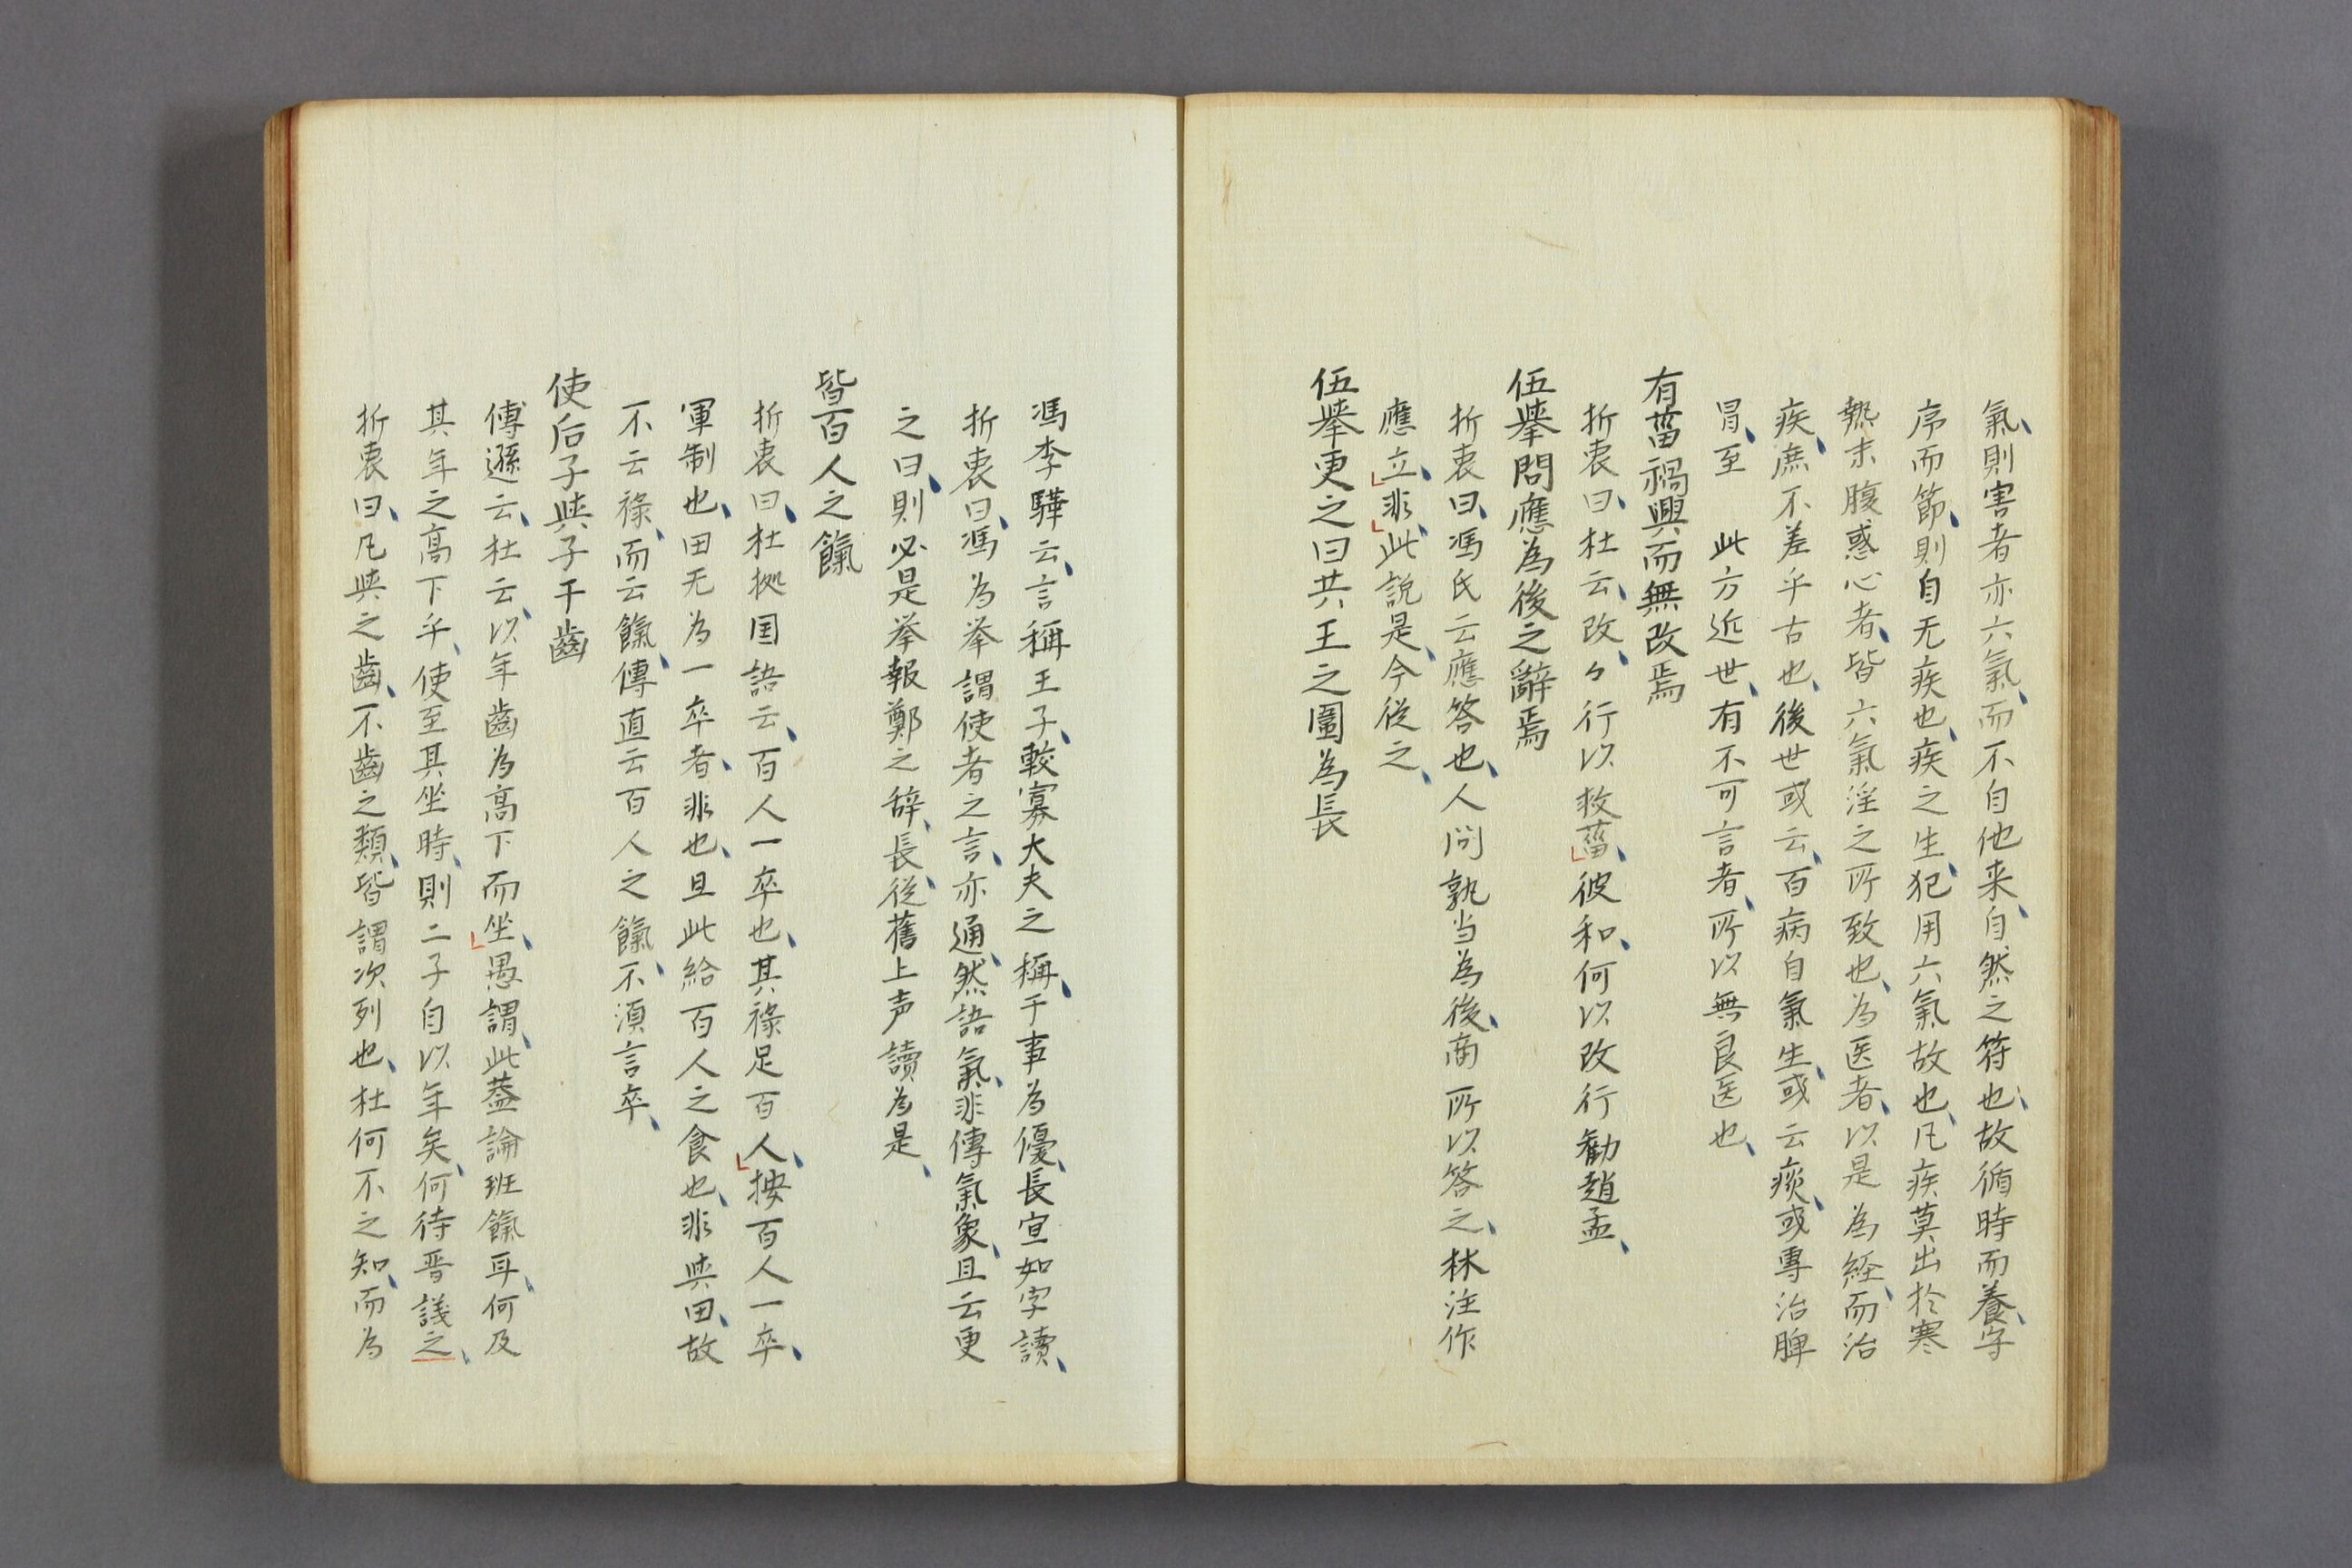 氣、則害者亦六氣、而不自他来、自然之符也、故循時而養、守
序而節、則自无疾也、疾之生、犯用六氣故也、凡疾莫出於寒
熱末腹惑心者、皆六氣淫之所致也、為医者、以是為経、而治
疾、庶不差乎古也、後世或云、百病自氣生、或云痰、或專治脾
胃、至　此方近世、有不可言者、所以無良医也、
有菑禍興而無改焉
折衷曰、杜云、改、々行以救菑、彼和、何以改行勧趙孟、
伍舉問應為後之辭焉
折衷曰、馮氏云應答也、人問孰当為後、商所以答之、林注作
應立、非、此説是、今従之、
伍舉更之曰共王之圍為長
馮李驊云、言稱王子、較寡大夫之稱、于事為優、長宣如字讀、
折衷曰、馮為举謂使者之言、亦通、然語氣、非傳氣象、且云更
之曰、則必是举報鄭之辞、長、從舊上声讀為是、
皆百人之餼
折衷曰、杜拠国語云、百人一卒也、其祿足百人、按百人一卒、
軍制也、田无為一卒者、非也、且此給百人之食也、非與田、故
不云祿、而云餼、傳直云百人之餼、不須言卒、
使后子與子干齒
傅遜云、杜云、以年齒為高下而坐、愚謂、此蓋論班餼耳、何及
其年之高下乎、使至其坐時、則二子自以年矣、何待晋議之、
折衷曰、凡與之齒、不齒之類、皆謂次列也、杜何不之知、而為